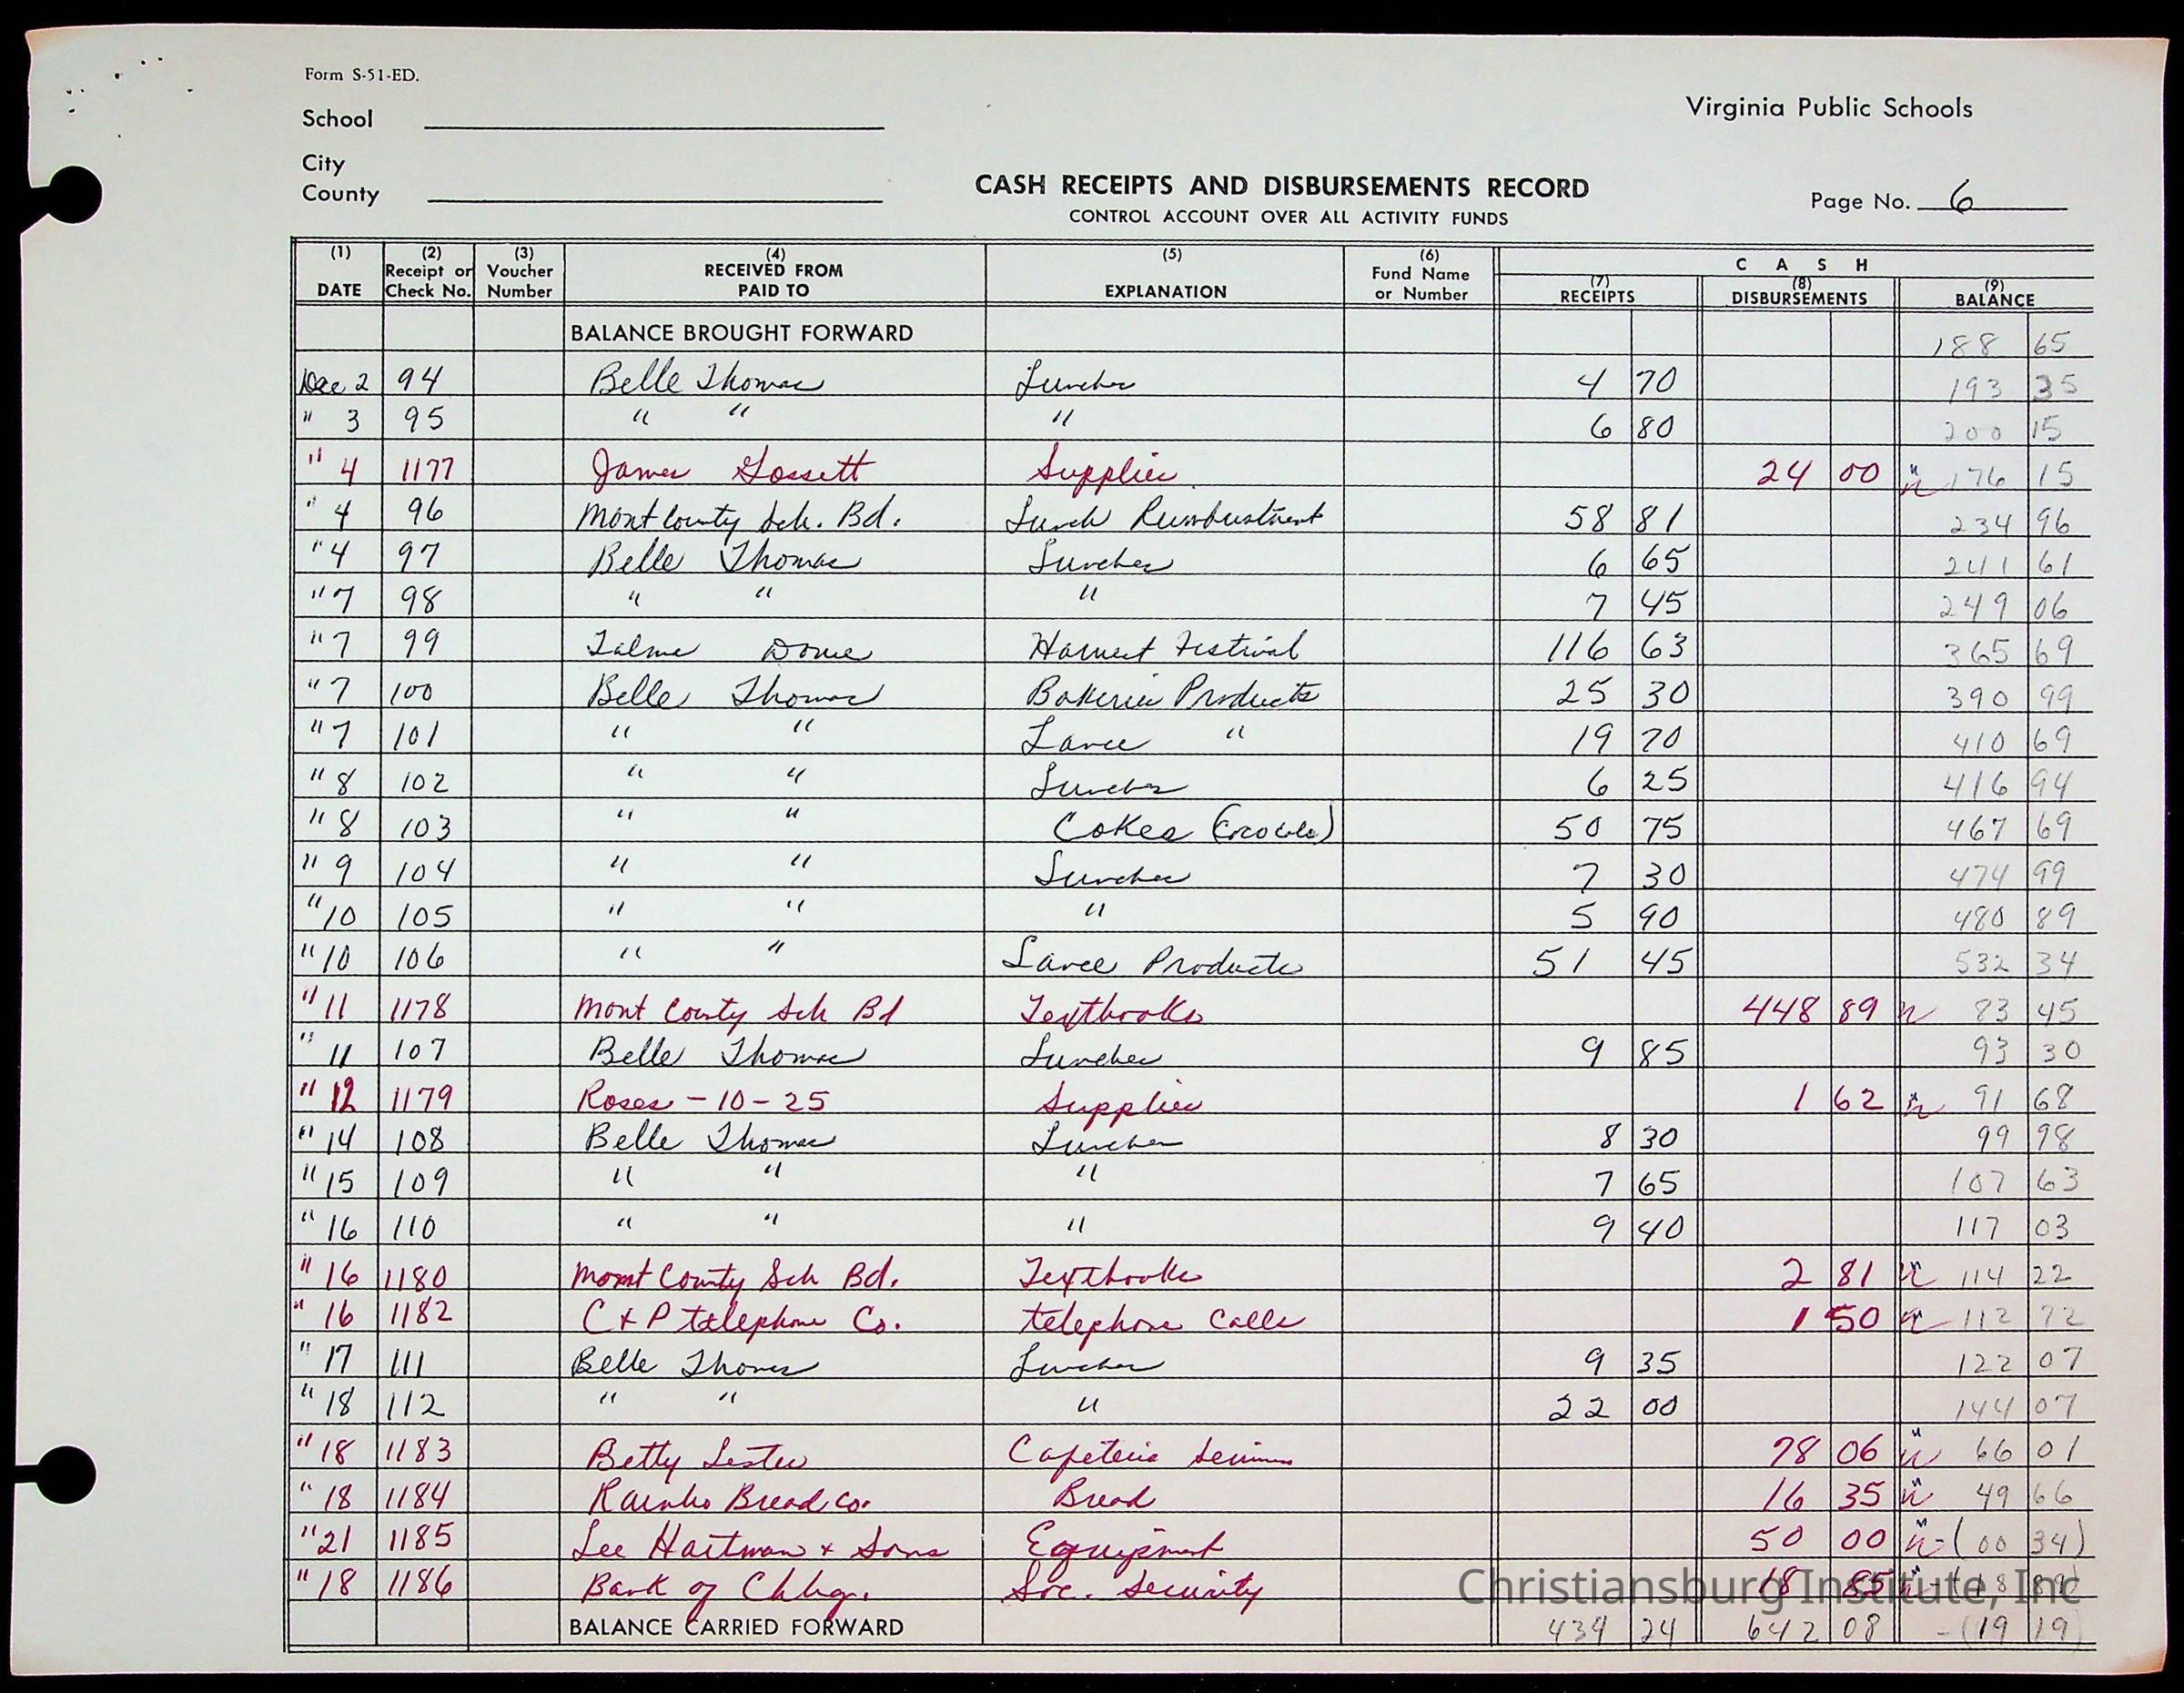 Form S-51-ED.
School
Virginia Public Schools
City
County
CASH RECEIPTS AND DISBURSEMENTS RECORD
Page No. 6
CONTROL ACCOUNT OVER ALL ACTIVITY FUNDS
(1) DATE (2) Receipt or Check No. (3) Voucher Number (4) RECEIVED FROM PAID TO (5) EXPLANATION (6) Fund Name or Number CASH (7) RECEIPTS (8) DISBURSEMENTS (9) BALANCE
BALANCE BROUGHT FORWARD 188 65
Dec 2 94 Belle Thomas Lunches 4 70 193 35
" 3 95 " " " 6 80 200 15
" 4 1177 James Gossett Supplies 24 00 176 15
" 4 96 Mont County Sch. Bd. Lunch 58 81 234 96
" 4 97 Belle Thomas Lunches 6 65 241 61
" 7 98 " " " 7 45 249 06
" 7 99 Harvest Festival 116 63 365 69
" 7 100 Belle Thomas Products 25 30 390 99
" 7 101 " " Lance " 19 70 410 69
" 8 102 " " Lunches 6 25 416 94
" 8 103 " " Cokes 50 75 467 69
" 9 104 " " Lunches 7 30 474 99
" 10 105 " " " 5 90 480 89
" 10 106 " " Lance Products 51 45 532 34
" 11 1178 Mont County Sch Bd Textbooks 448 89 83 45
" 11 107 Belle Thomas Lunches 9 85 93 30
" 12 1179 Roses - 10-25 Supplies 1 62 91 68
" 14 108 Belle Thomas Lunches 8 30 99 98
" 15 109 " " " 7 65 107 63
" 16 110 " " " 9 40 117 03
" 16 1180 Mont County Sch Bd. Textbooks 2 81 114 22
" 16 1182 C & P telephone Co. telephone calls 1 50 112 72
" 17 111 Belle Thomas Lunches 9 35 122 07
" 18 112 " " " 22 00 144 07
" 18 1183 Betty Lester Cafeteria 78 06 66 01
" 18 1184 Rainbo Bread Co. Bread 16 35 49 66
" 21 1185 Lee Hartman & Sons Equipment 50 00 -(00 34)
" 18 1186 Bank of Chbg. Soc. Security 18 85
BALANCE CARRIED FORWARD 434 24 642 08 -(19 19)
Christiansburg Institute, Inc